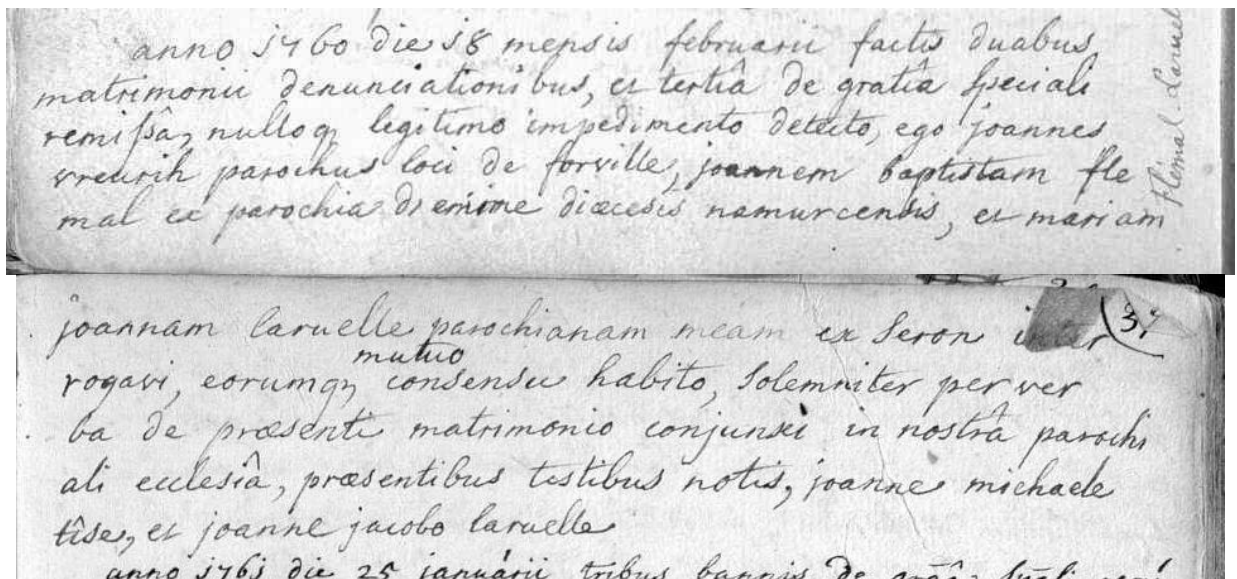 anno 1760 die 18 mensis februarii factis duabus
matrimonii denunciationibus, et tertiâ de gratiâ speciali
remissâ, nulloq, legitimo impedimento detecto, ego joannes
parochus loci de forville, joannem baptistam fle
mal ex parochia d'emine diœcesis namurcensis, et mariam
flémal Laruel
37
joannam laruelle parochianam meam ex seron inter
mutuo
rogavi, eorumq, consensu habito, solemniter per ver
ba de præsenti matrimonio conjunxi in nostrâ parochi
ali ecclesiâ, præsentibus testibus notis, joanne michaele
tise, et joanne jacobo laruelle
anno 1761 die 25 januárii tribus bannis de